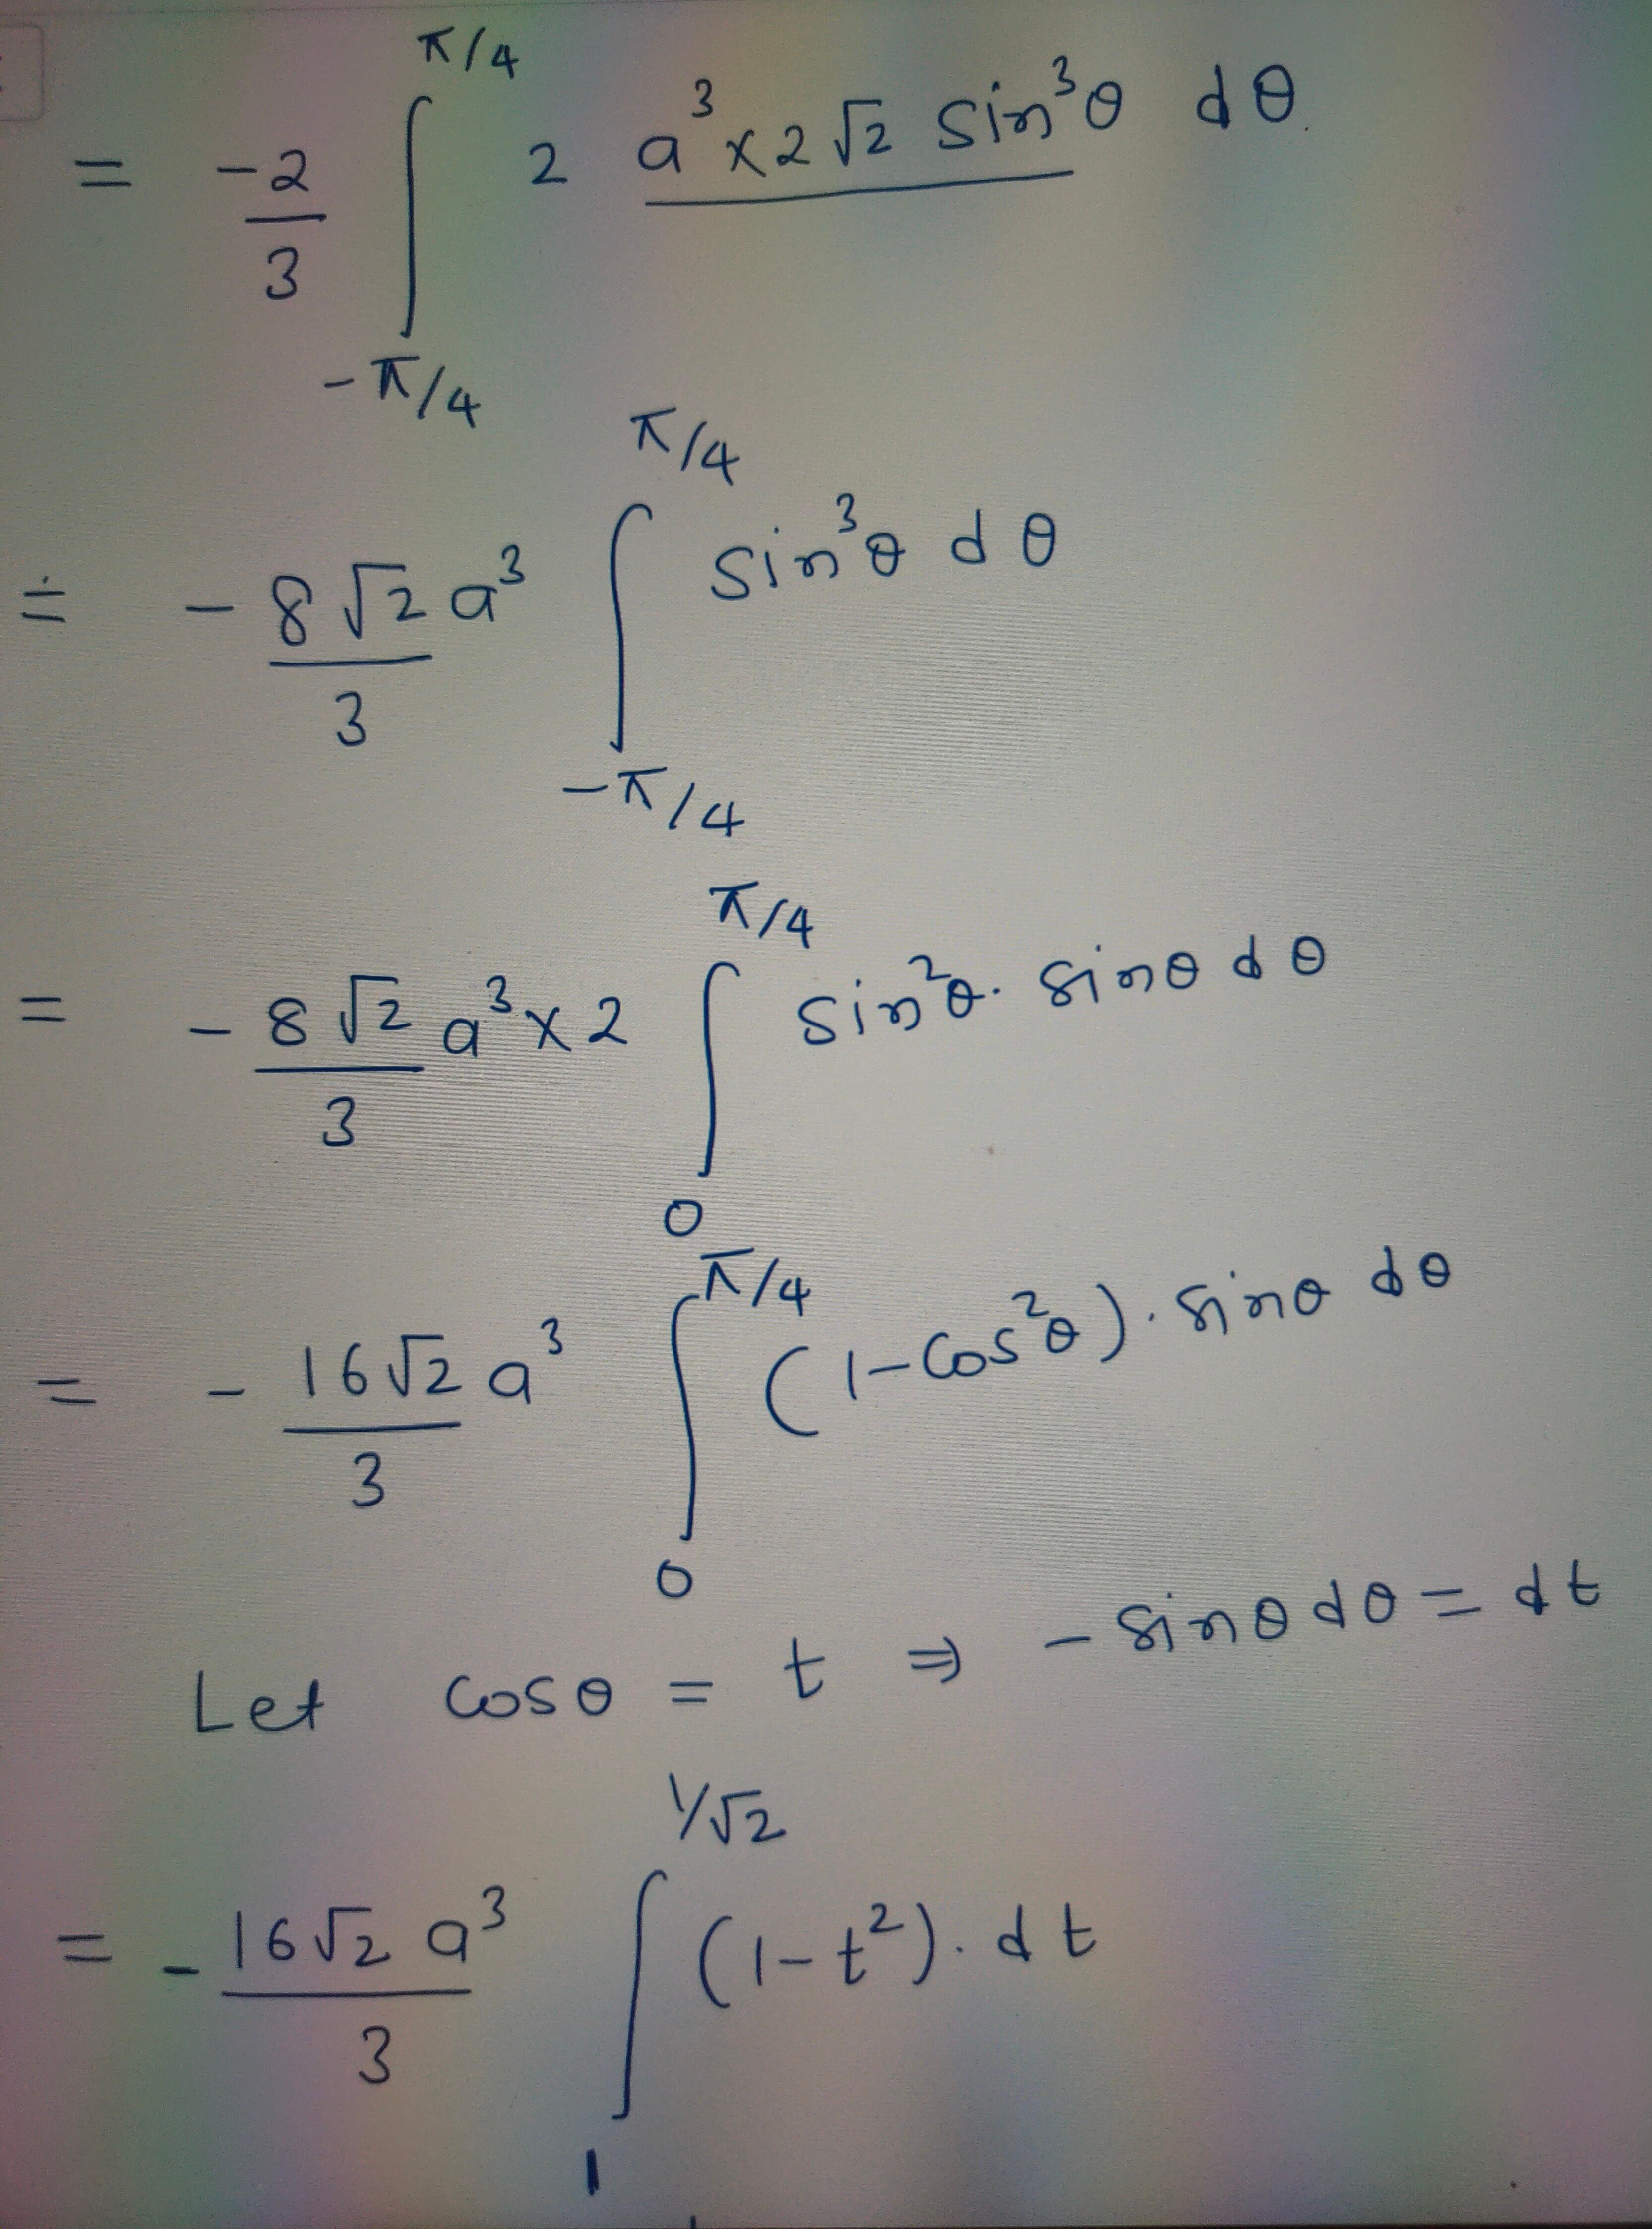 = -2/3 ∫_{-π/4}^{π/4} 2 a³ × 2√2 sin³θ dθ.
= - 8√2/3 a³ ∫_{-π/4}^{π/4} sin³θ dθ
= - 8√2/3 a³ × 2 ∫_{0}^{π/4} sin²θ. sinθ dθ
= - 16√2/3 a³ ∫_{0}^{π/4} (1-cos²θ). sinθ dθ
Let cosθ = t ⇒ - sinθ dθ = dt
= - 16√2 a³/3 ∫_{1}^{1/√2} (1-t²). dt